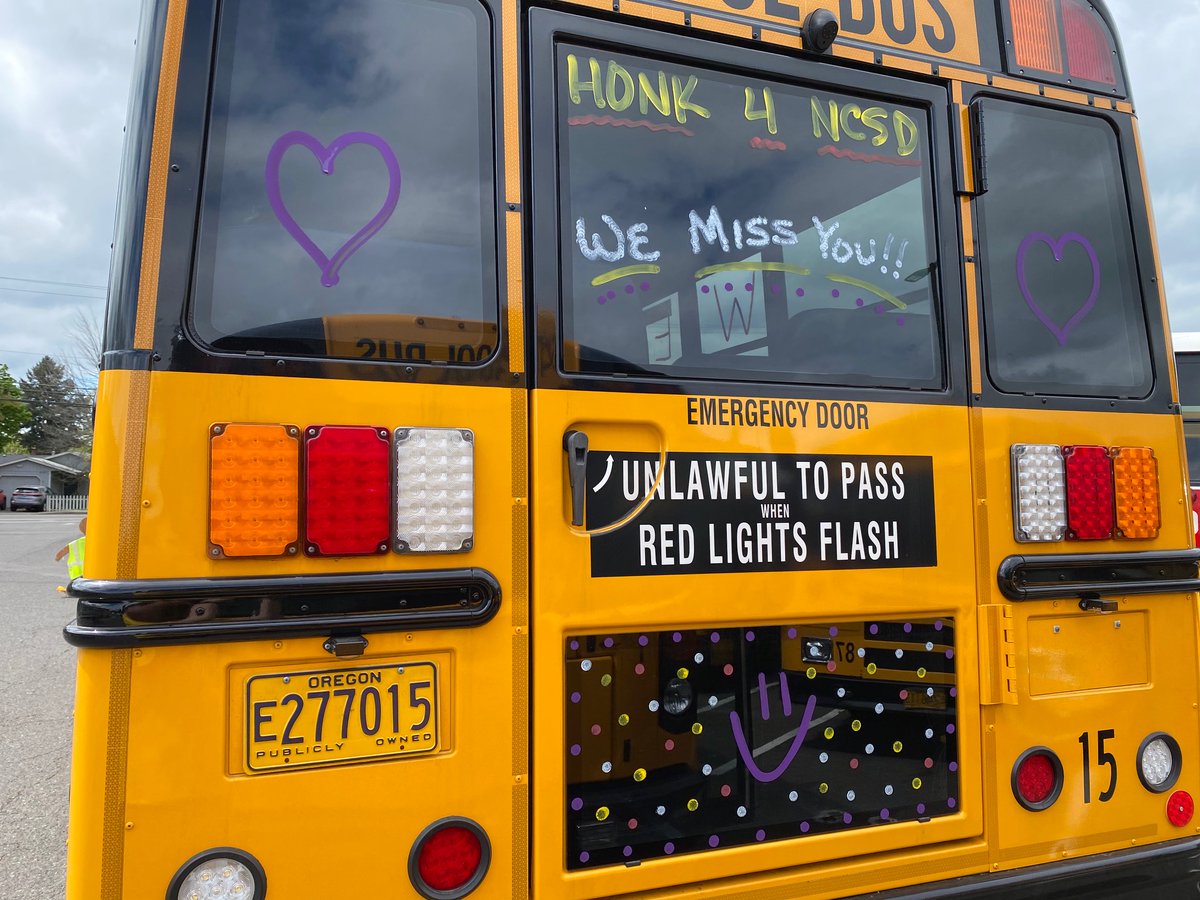 BUS
HONK 4 NCSD
WE MISS YOU!!
W
EMERGENCY DOOR
UNLAWFUL TO PASS
WHEN
RED LIGHTS FLASH
OREGON
E277015
PUBLICLY OWNED
87
15